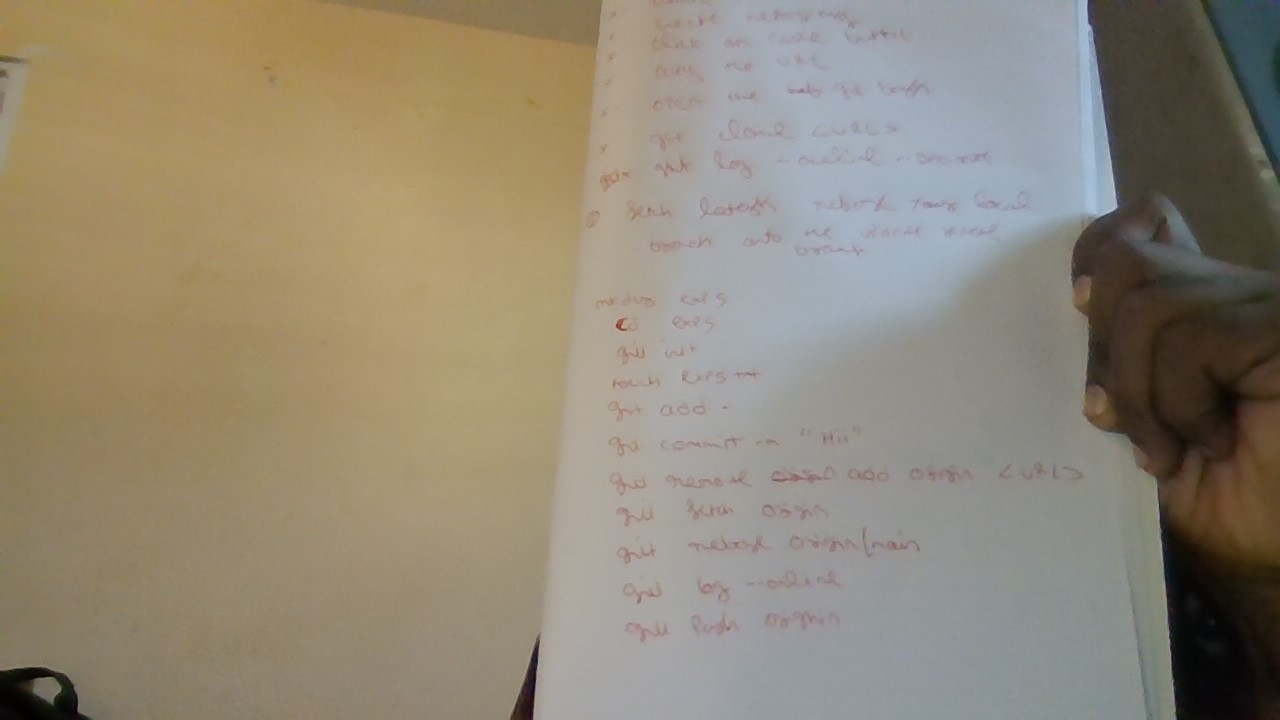 create repository
click on code button
copy the URL
open the git bash
git clone <URL>
git log --oneline
5) fetch latest rebase your local
branch onto the
branch
mkdir exp5
cd exp5
git init
touch exp5.txt
git add .
git commit -m "Hii"
git remote add origin <URL>
git fetch origin
git rebase origin/main
git log --oneline
git push origin